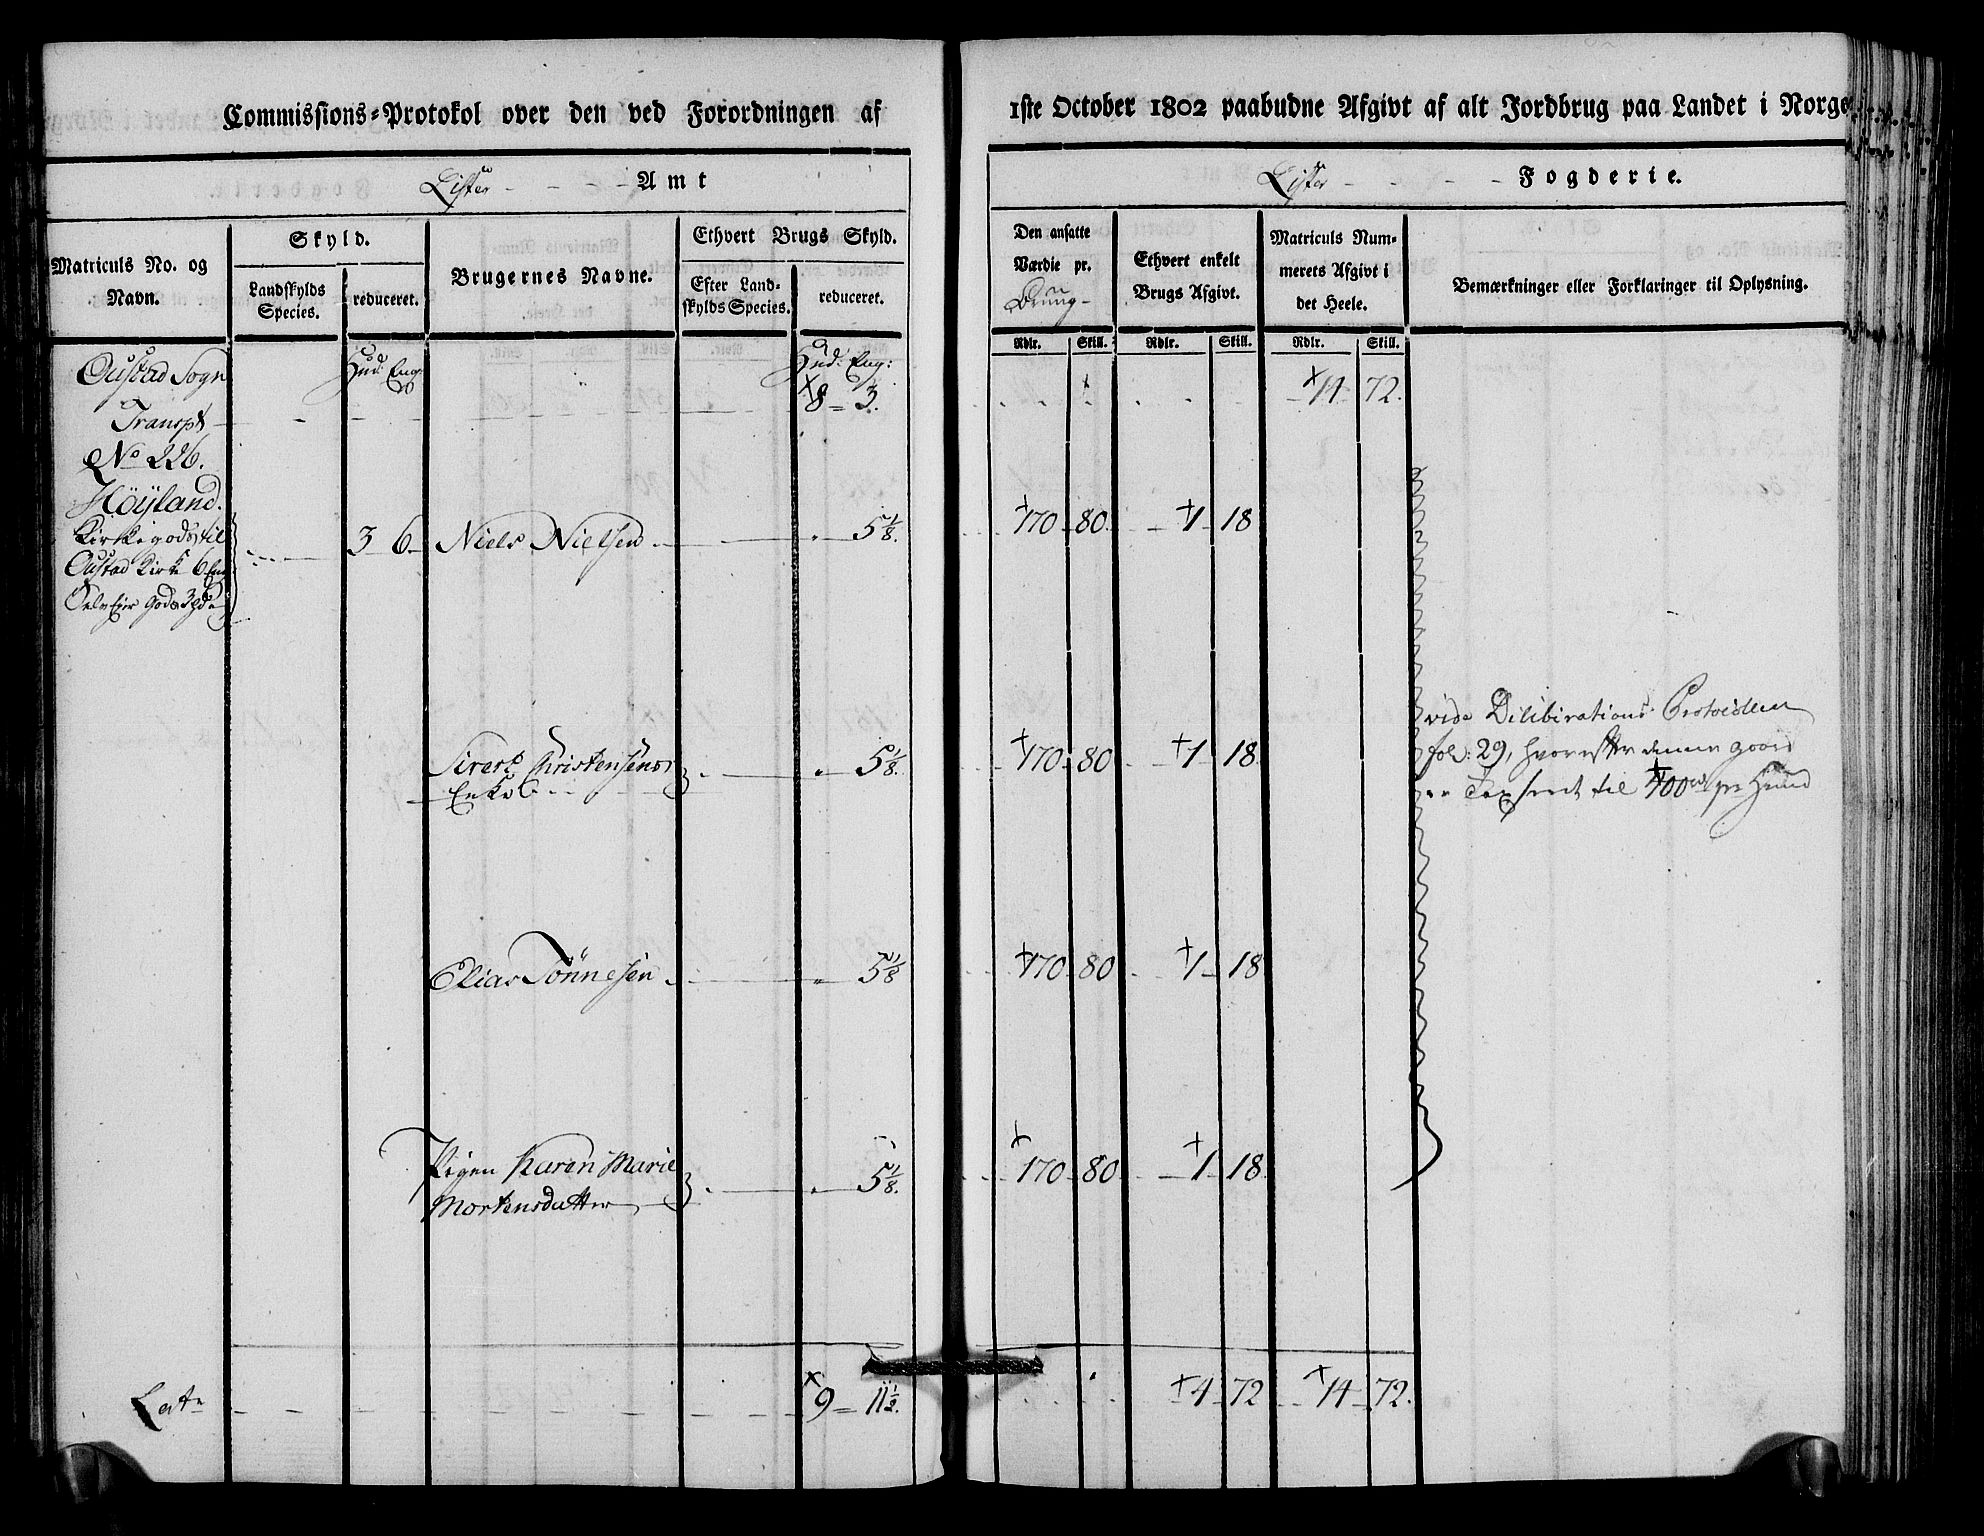 Commissions-Protokol over den ved Forordningen af
1ste October 1802 paabudne Afgivt af alt Jordbrug paa Landet i Norge
Lister - - - Amt
Lister - - - Fogderie.
Matriculs No. og Navn.
Skyld.
Landskylds Species.
reduceret.
Brugernes Navne.
Ethvert Brugs Skyld.
Efter Landskylds Species.
reduceret.
Den ansatte Værdie pr. Brug
Ethvert enkelt Brugs Afgivt.
Matriculs Nummerets Afgivt i det Heele.
Bemærkninger eller Forklaringer til Oplysning.
Rdlr. Skill. Rdlr. Skill. Rdlr. Skill.
Oustad Sogn Hud: Eng: Hud: Eng:
Transpt 8 - 3. 14 - 72.
No 226.
Höyland.
Kirkigods til 3 6 Niels Nielsen 5 1/8. 170 - 80. 1 - 18
Oustad Kirke 6 Eng
Selv Eier Gods 3
Sivert Christensens 5 1/8. 170 - 80 1 - 18
Enke
vide Deliberations Protocollen
fol: 29, hvorefter denne gaard
er Taxseret til 400 rd pr Huud
Elias Tönnesen 5 1/8 170 - 80 1 - 18
Pigen Karen Marie 5 1/8. 170 - 80 1 - 18
Mortensdatter
Lat 9 - 11 1/2. 4 72 14 - 72.